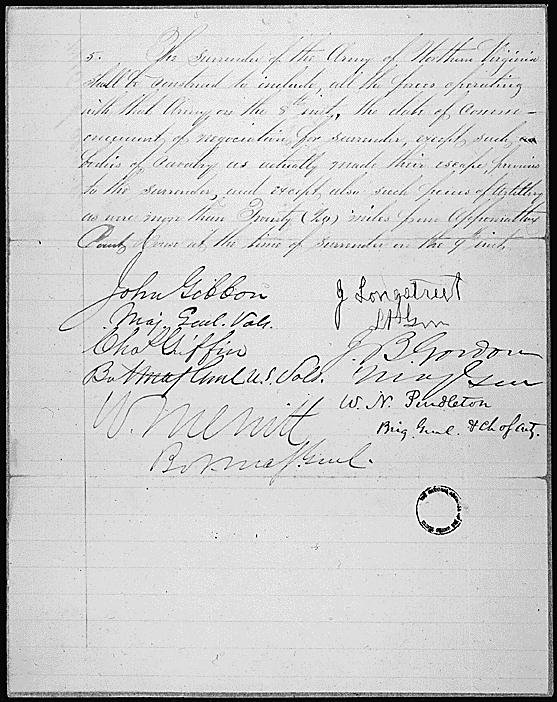 5. The surrender of the Army of Northern Virginia
shall be construed to include, all the forces operating
with that Army on the 8th inst, the date of commen-
cement of negociation for surrender, except such
bodies of Cavalry as actually made their escape, previous
to the surrender, and except also such pieces of Artillery
as were more than Twenty (20) miles from Appomattox
Court House at the time of surrender on the 9th inst.
John Gibbon
Maj. Genl. Vols.
Chas Griffin
Bvt Maj Genl U.S. Vols.
W. Merritt
Bvt Maj. Genl.
J Longstreet
Lt Gen
J. B Gordon
Maj Gen
W. N. Pendleton
Brig. Genl. & Ch of Art.